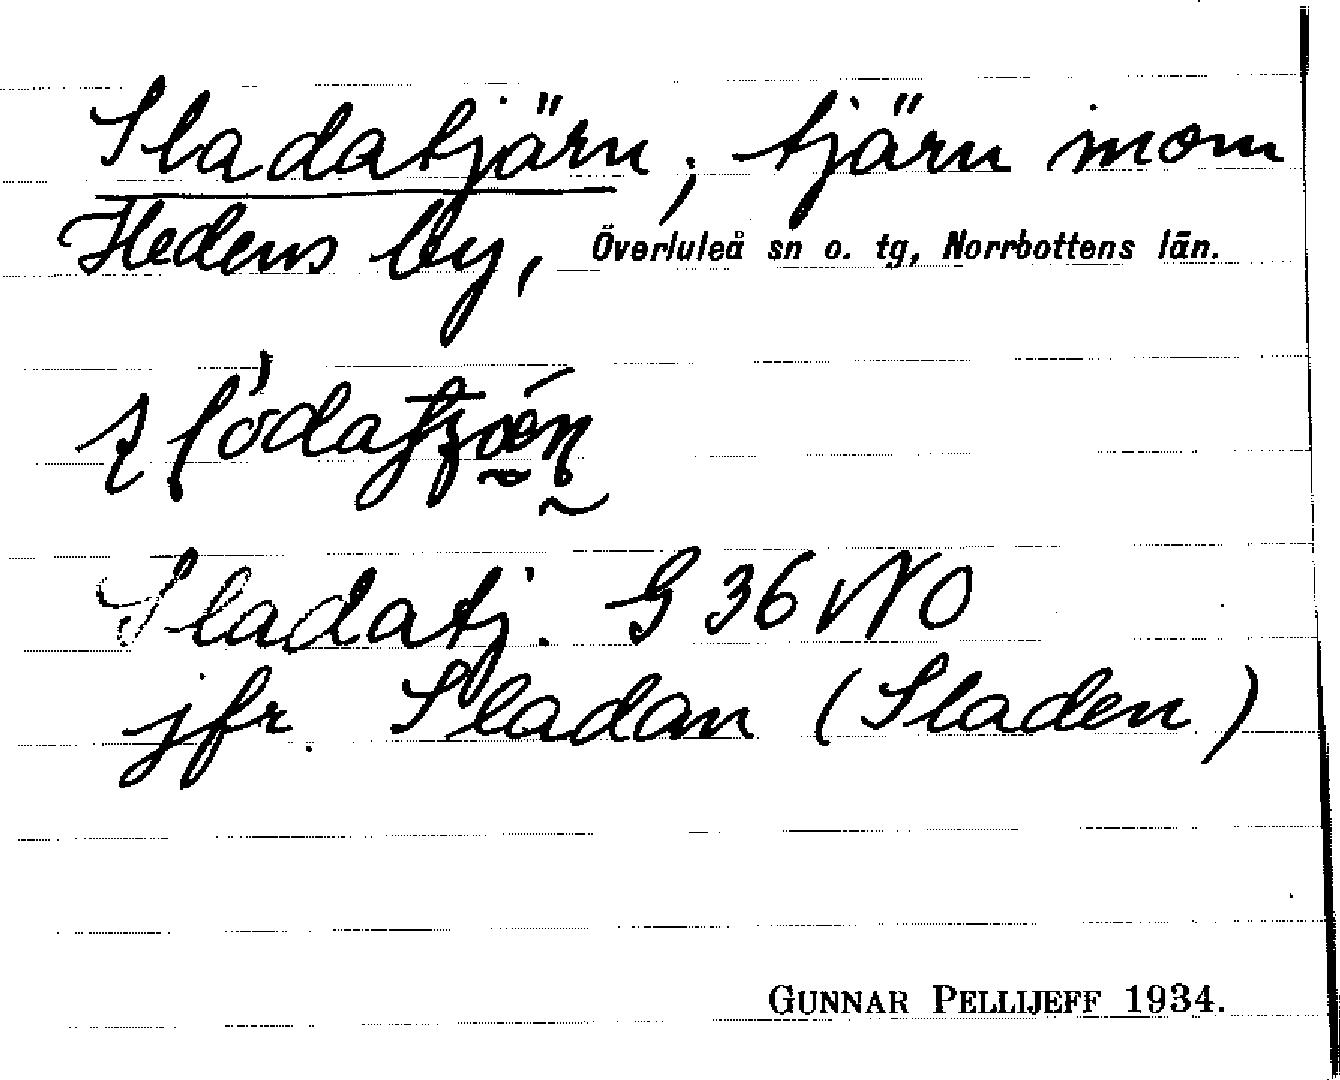 Sladatjärn; tjärn inom
Hedens by, Överluleå sn o. tg, Norrbottens län.
Sladatj. G 36 NO
jfr. Sladan (Sladen)
GUNNAR PELLIJEFF 1934.